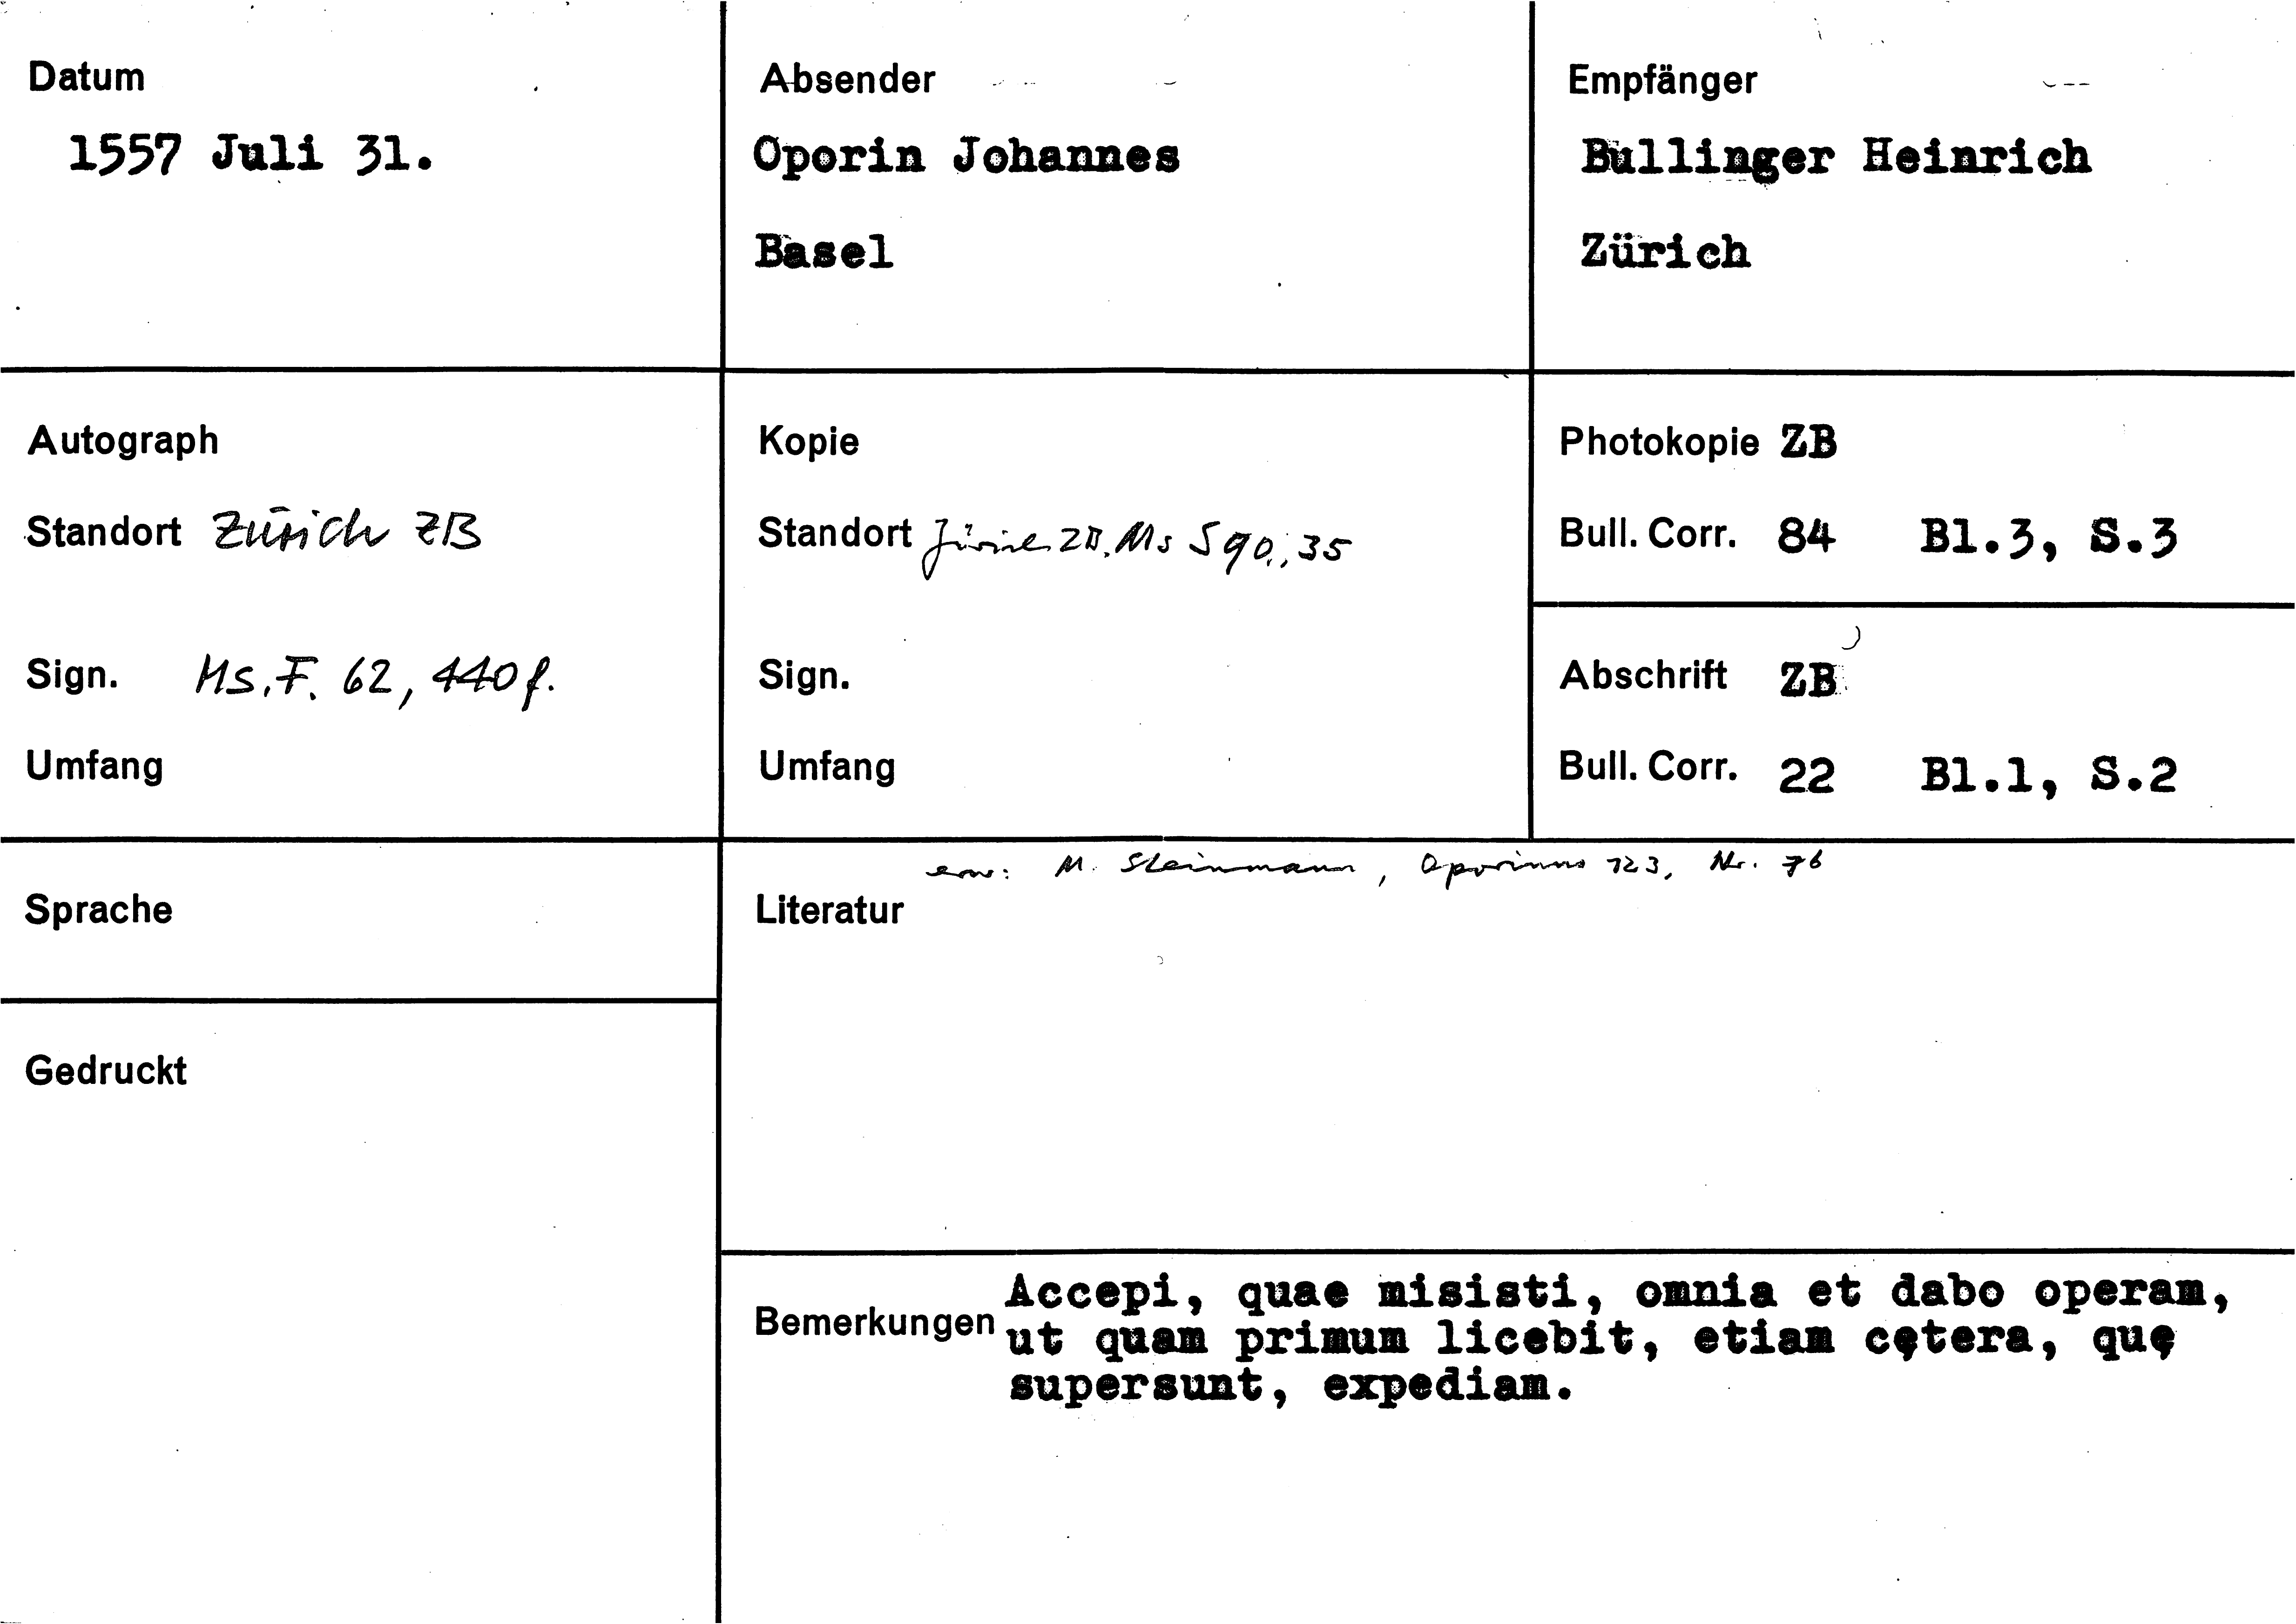 Datum
1557 Juli 31.
Absender
Oporin Johannes
Basel
Empfänger
Bullinger Heinrich
Zürich
Autograph
Standort Zürich ZB
Sign. Ms. F. 62, 440 f.
Umfang
Kopie
Standort Zürich ZB, Ms S 90, 35
Sign.
Umfang
Photokopie ZB
Bull. Corr. 84 Bl.3, S.3
Abschrift ZB
Bull. Corr. 22 Bl.1, S.2
Sprache
Gedruckt
erw: M. Steinmann, Oporinus 123, Nr. 76
Literatur
Bemerkungen
Accepi, quae misisti, omnia et dabo operam,
ut quam primum licebit, etiam cętera, quę
supersunt, expediam.